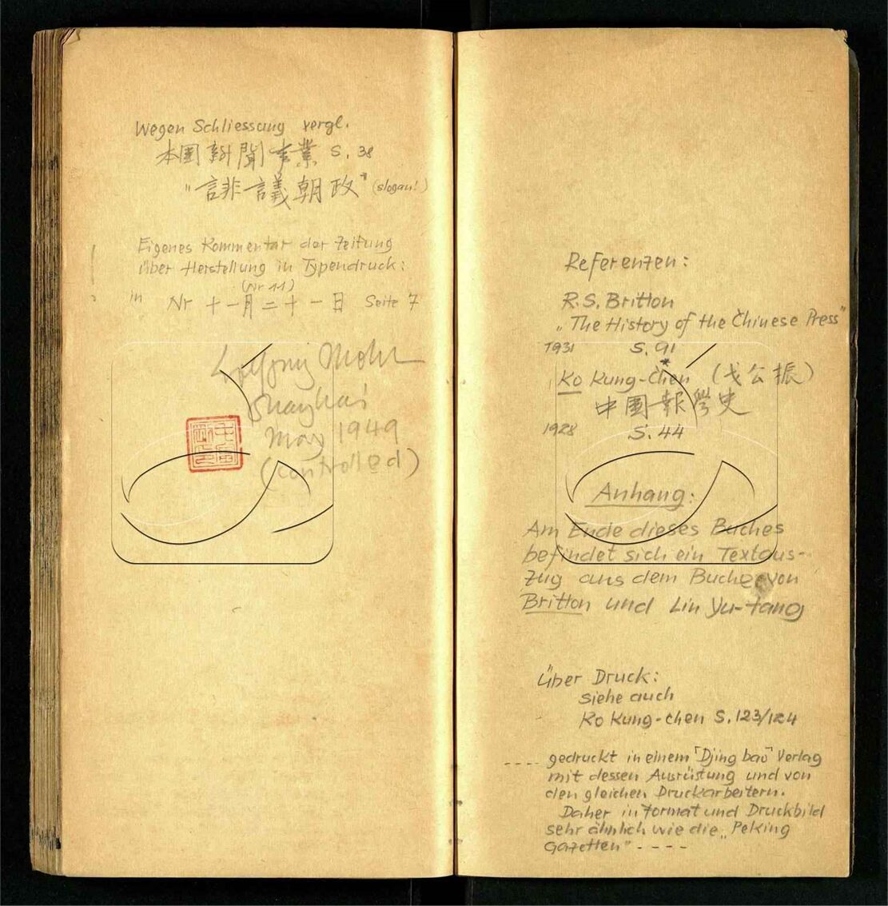 Wegen Schliessung vergl.
本國新聞事業 S. 38
"誹議朝政" (slogan!)
Eigenes Kommentar der Zeitung
über Herstellung in Typendruck:
(Nr 11)
in Nr 十一月二十一日 Seite 7
Wolfgang Mohr
Shanghai
May 1949
(controlled)
Referenzen:
R.S. Britton
"The History of the Chinese Press"
1931 S. 91
Ko Kung-chen (戈公振)
中國報學史
1928 S. 44
Anhang:
Am Ende dieses Buches
befindet sich ein Textaus-
zug aus dem Buche von
Britton und Lin Yu-tang
Über Druck:
siehe auch
Ko Kung-chen S. 123/124
---- gedruckt in einem "Djing bao" Verlag
mit dessen Ausrüstung und von
den gleichen Druckarbeitern.
Daher in Format und Druckbild
sehr ähnlich wie die "Peking
Gazetten" ----